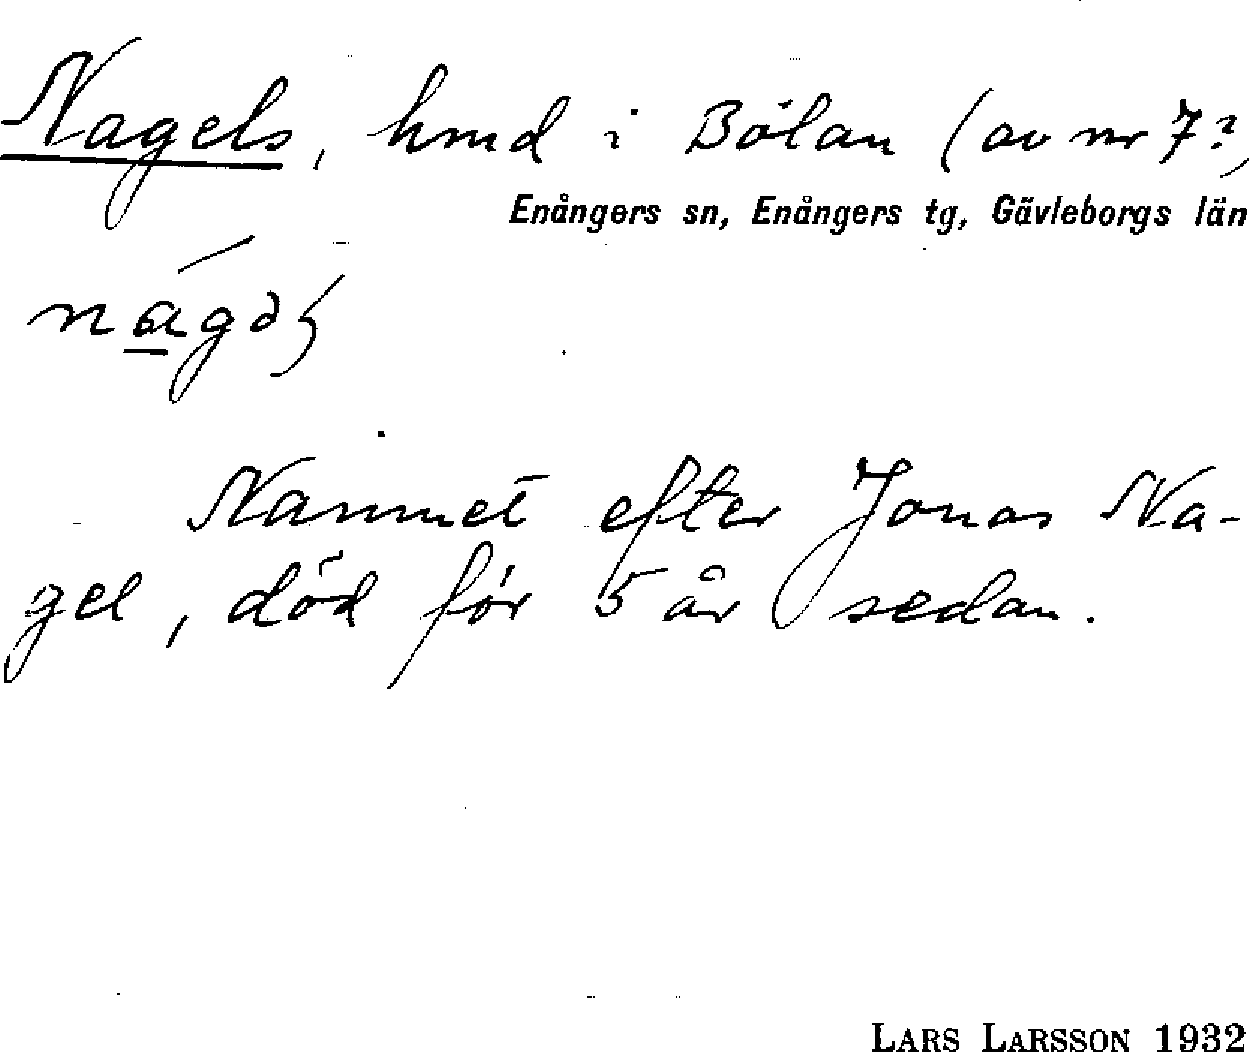 Nagels, hmd i Bölan (av nr 7?)
Enångers sn, Enångers tg, Gävleborgs län
Namnet efter Jonas Na-
gel, död för 5 år sedan.
LARS LARSSON 1932